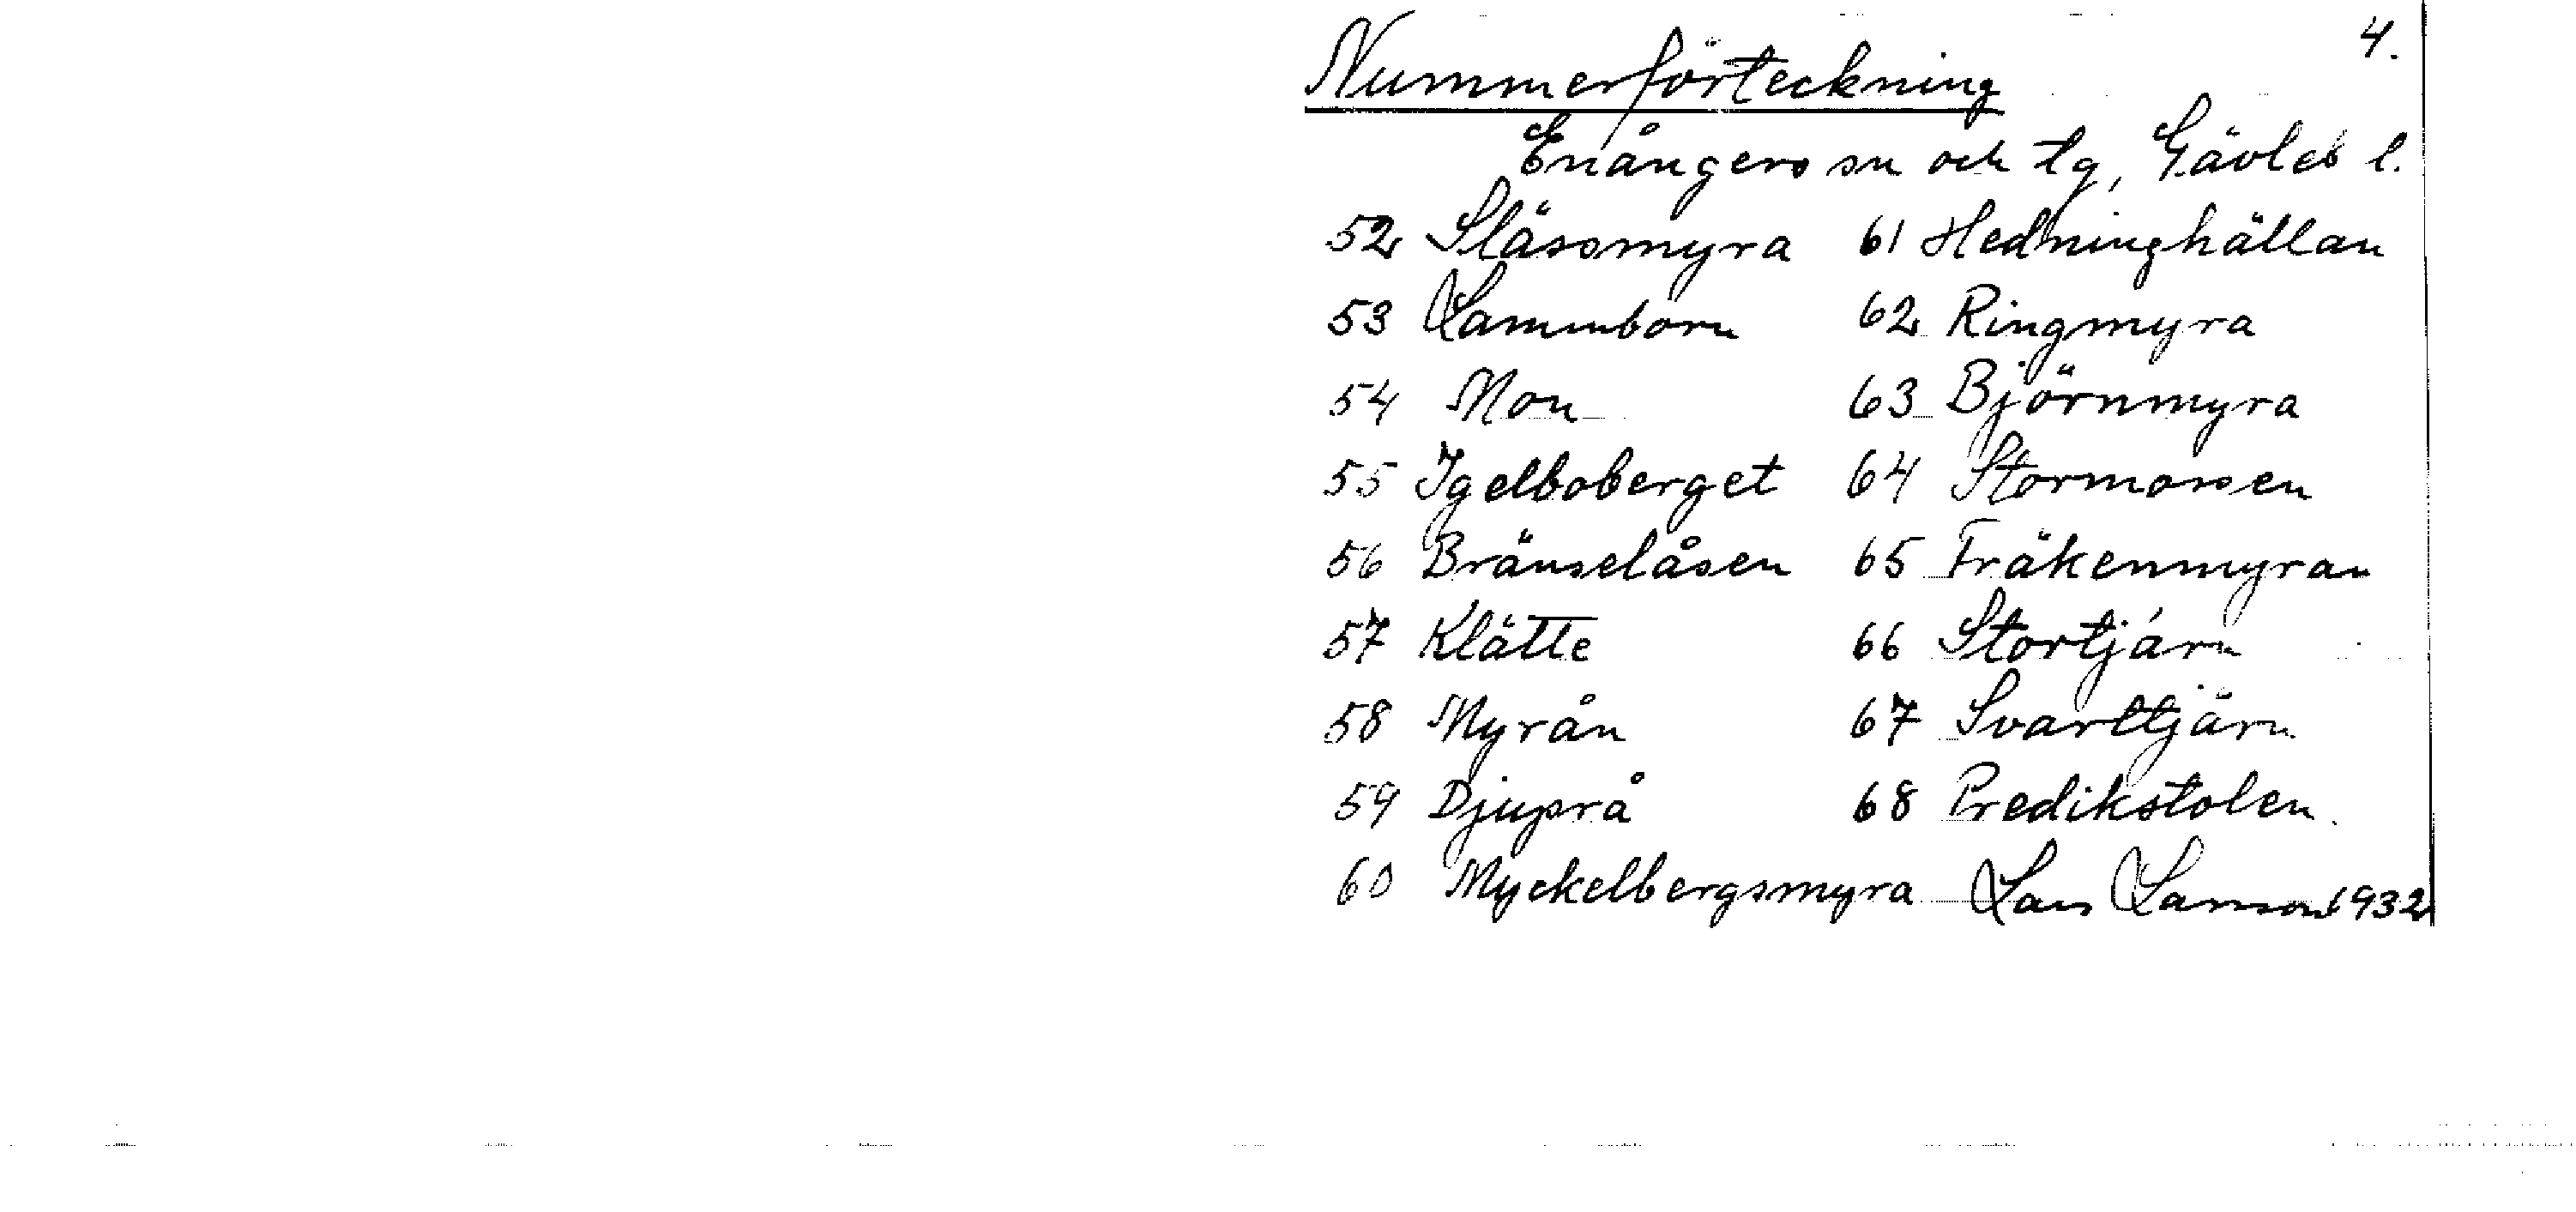 4.
Nummerförteckning
Enångers sn och tg, Gävleb l.
52 Slässmyra 61 Hedninghällan
53 Lammborn 62 Ringmyra
54 Mon 63 Björnmyra
55 Igelboberget 64 Stormossen
56 Bränselåsen 65 Fräkenmyran
57 Klätte 66 Stortjärn
58 Myrån 67 Svarttjärn
59 Djuprå 68 Predikstolen.
60 Myckelbergsmyra Lars Larsson 1932